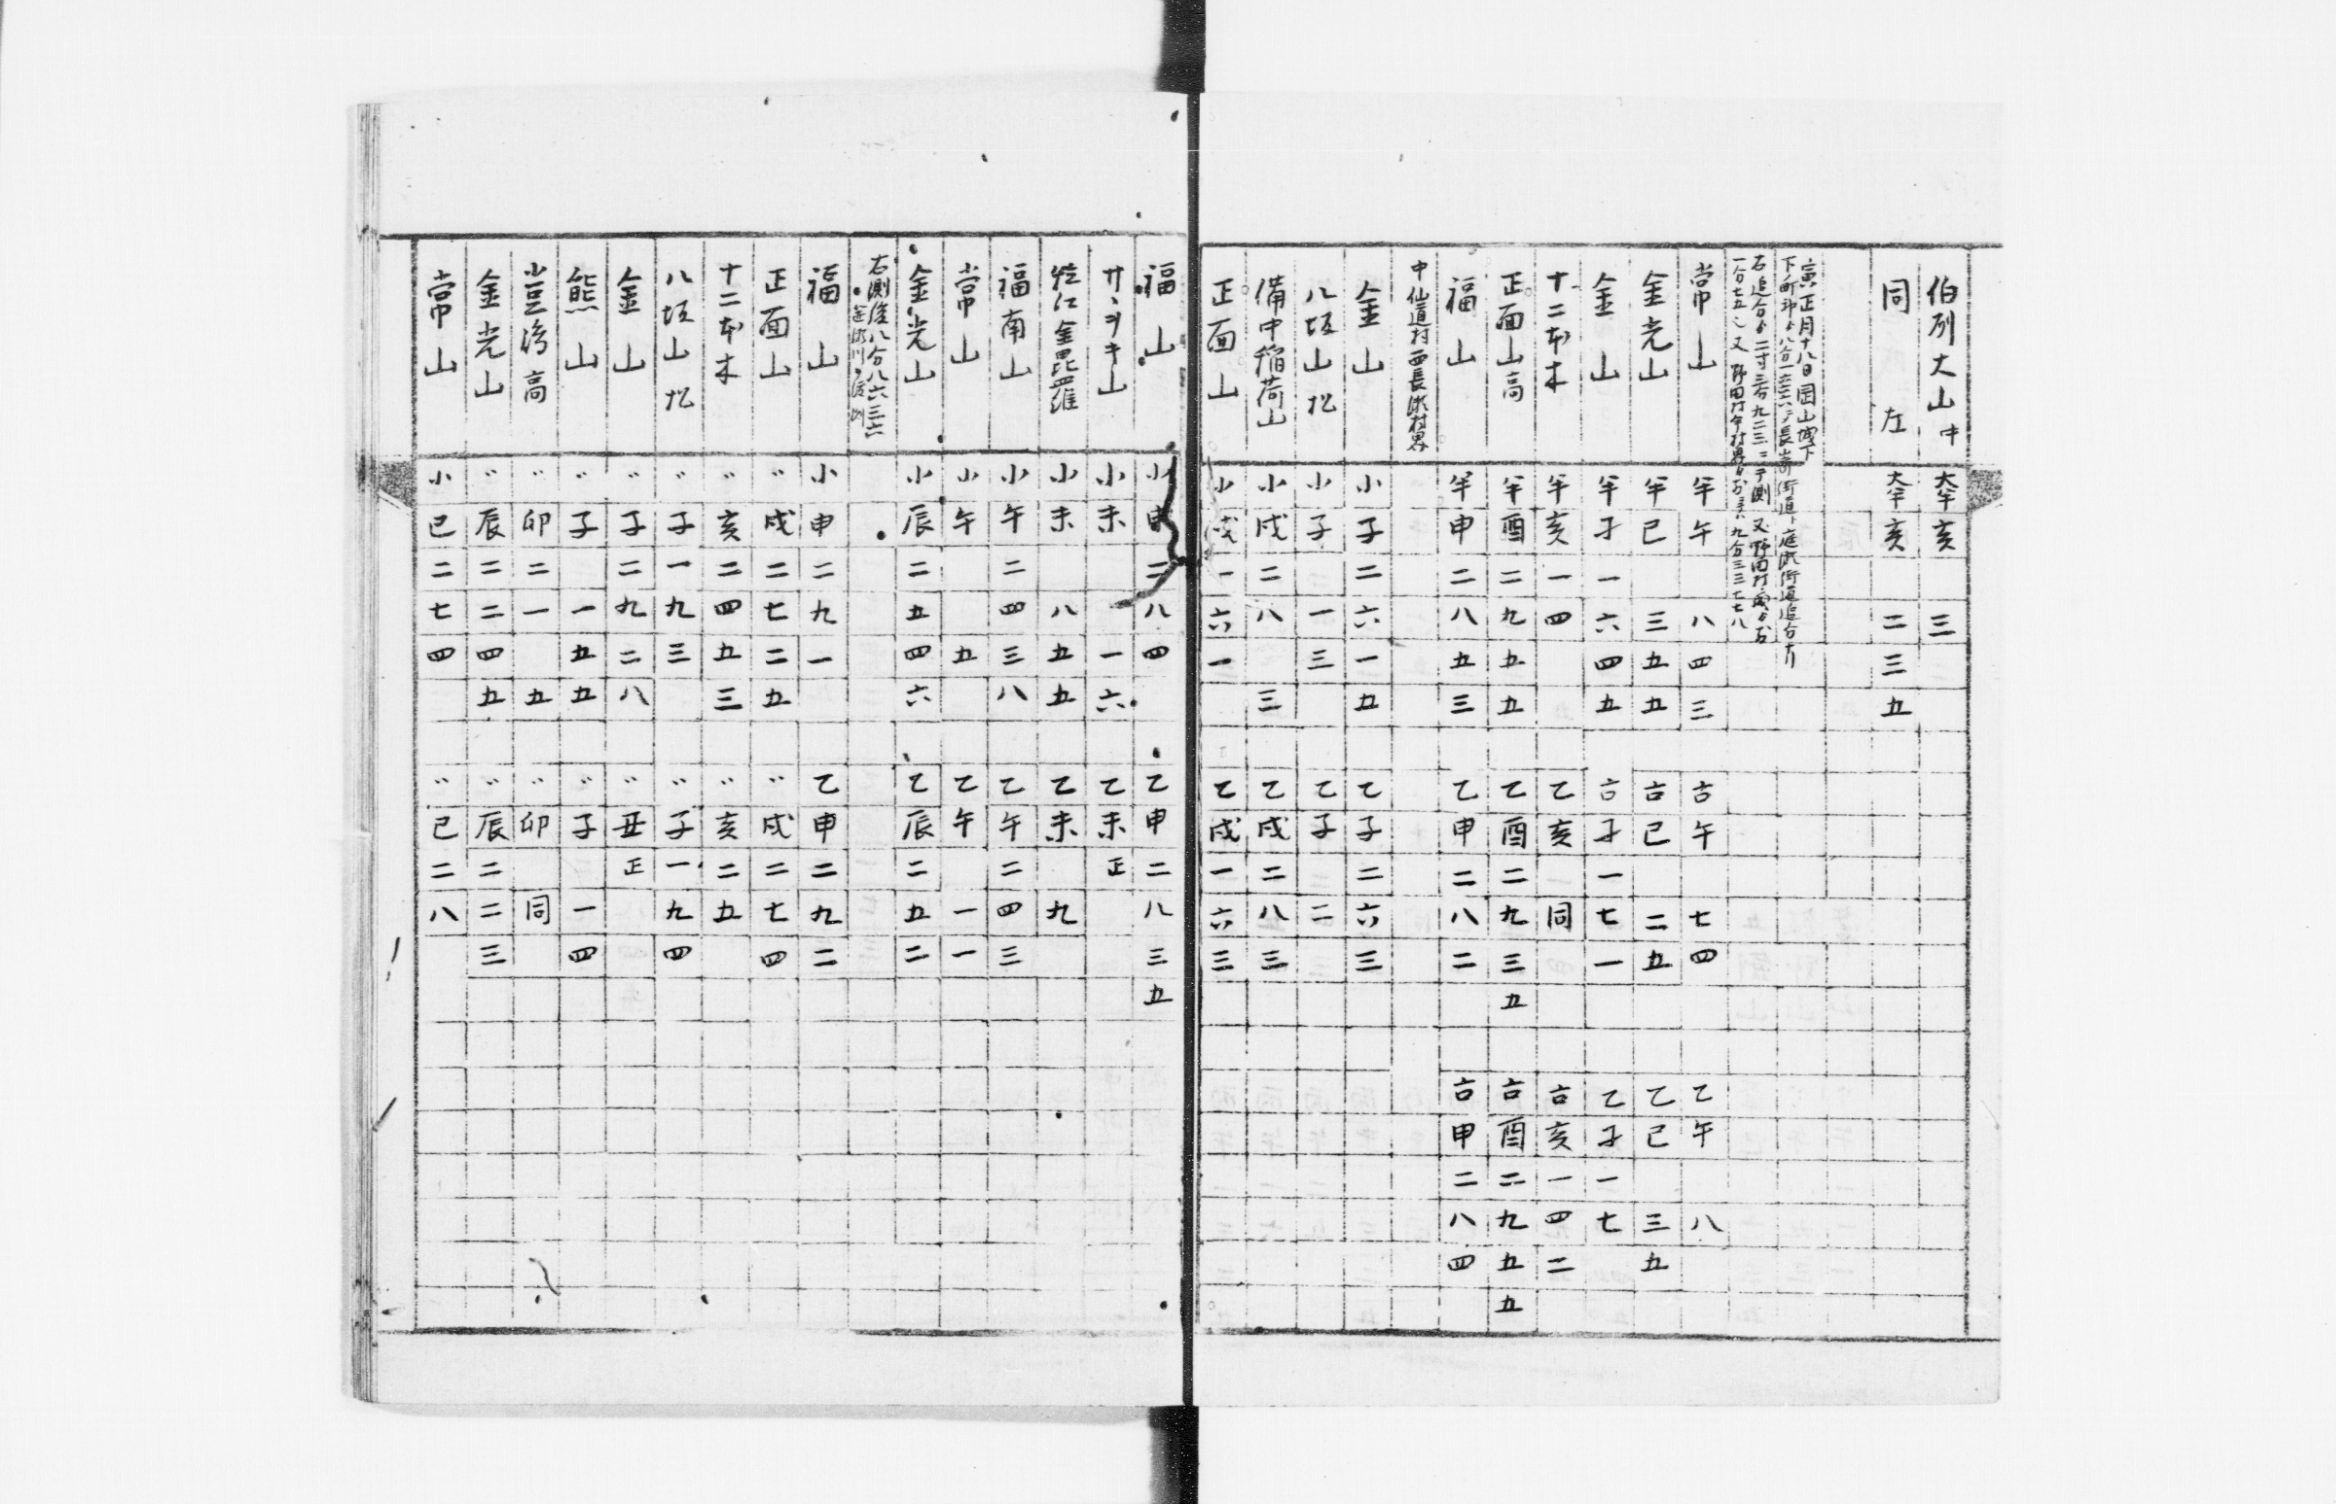 伯刕大山中 大半亥 三
同 左 大半亥 二三五
寅正月十八日岡山城下
常山 半午 八四三 吉午 七四 乙午 八
金光山 半巳 三五五 吉巳 二五 乙巳 三五
金山 半子一六四五 吉子一七一 乙子一七
十二本木 半亥一四 乙亥 同 吉亥一四二
正面山高 半酉二九五五 乙酉二九三五 吉酉二九五五
福山 半申二八五三 乙申二八二 吉申二八四
中仙道村西長瀬村界
金山 小子二六一五 乙子二六三
八坂山松 小子 一三 乙子 二
備中稲荷山 小戌二八 三 乙戌二八三
正面山 小戌一六一 乙戌一六三
福山 小申二八四 乙申二八三五
小未 一六 乙未正
金毘羅 小未 八五五 乙未 九
福南山 小午二四三八 乙午二四三
常山 小午 五 乙午 一一
金光山 小辰二五四六 乙辰二五二
右測後八分八六三六
福山 小申二九一 乙申二九二
正面山 〃戌二七二五 〃戌二七四
十二本木 〃亥二四五三 〃亥二五
八坂山松 〃子一九三 〃子一九四
金山 〃子二九二八 〃丑正
熊山 〃子 一五五 〃子 一四
小豆嶋高 〃卯二一 五 〃卯 同
金光山 〃辰二二四五 〃辰二二三
常山 小巳二七四 〃巳二八